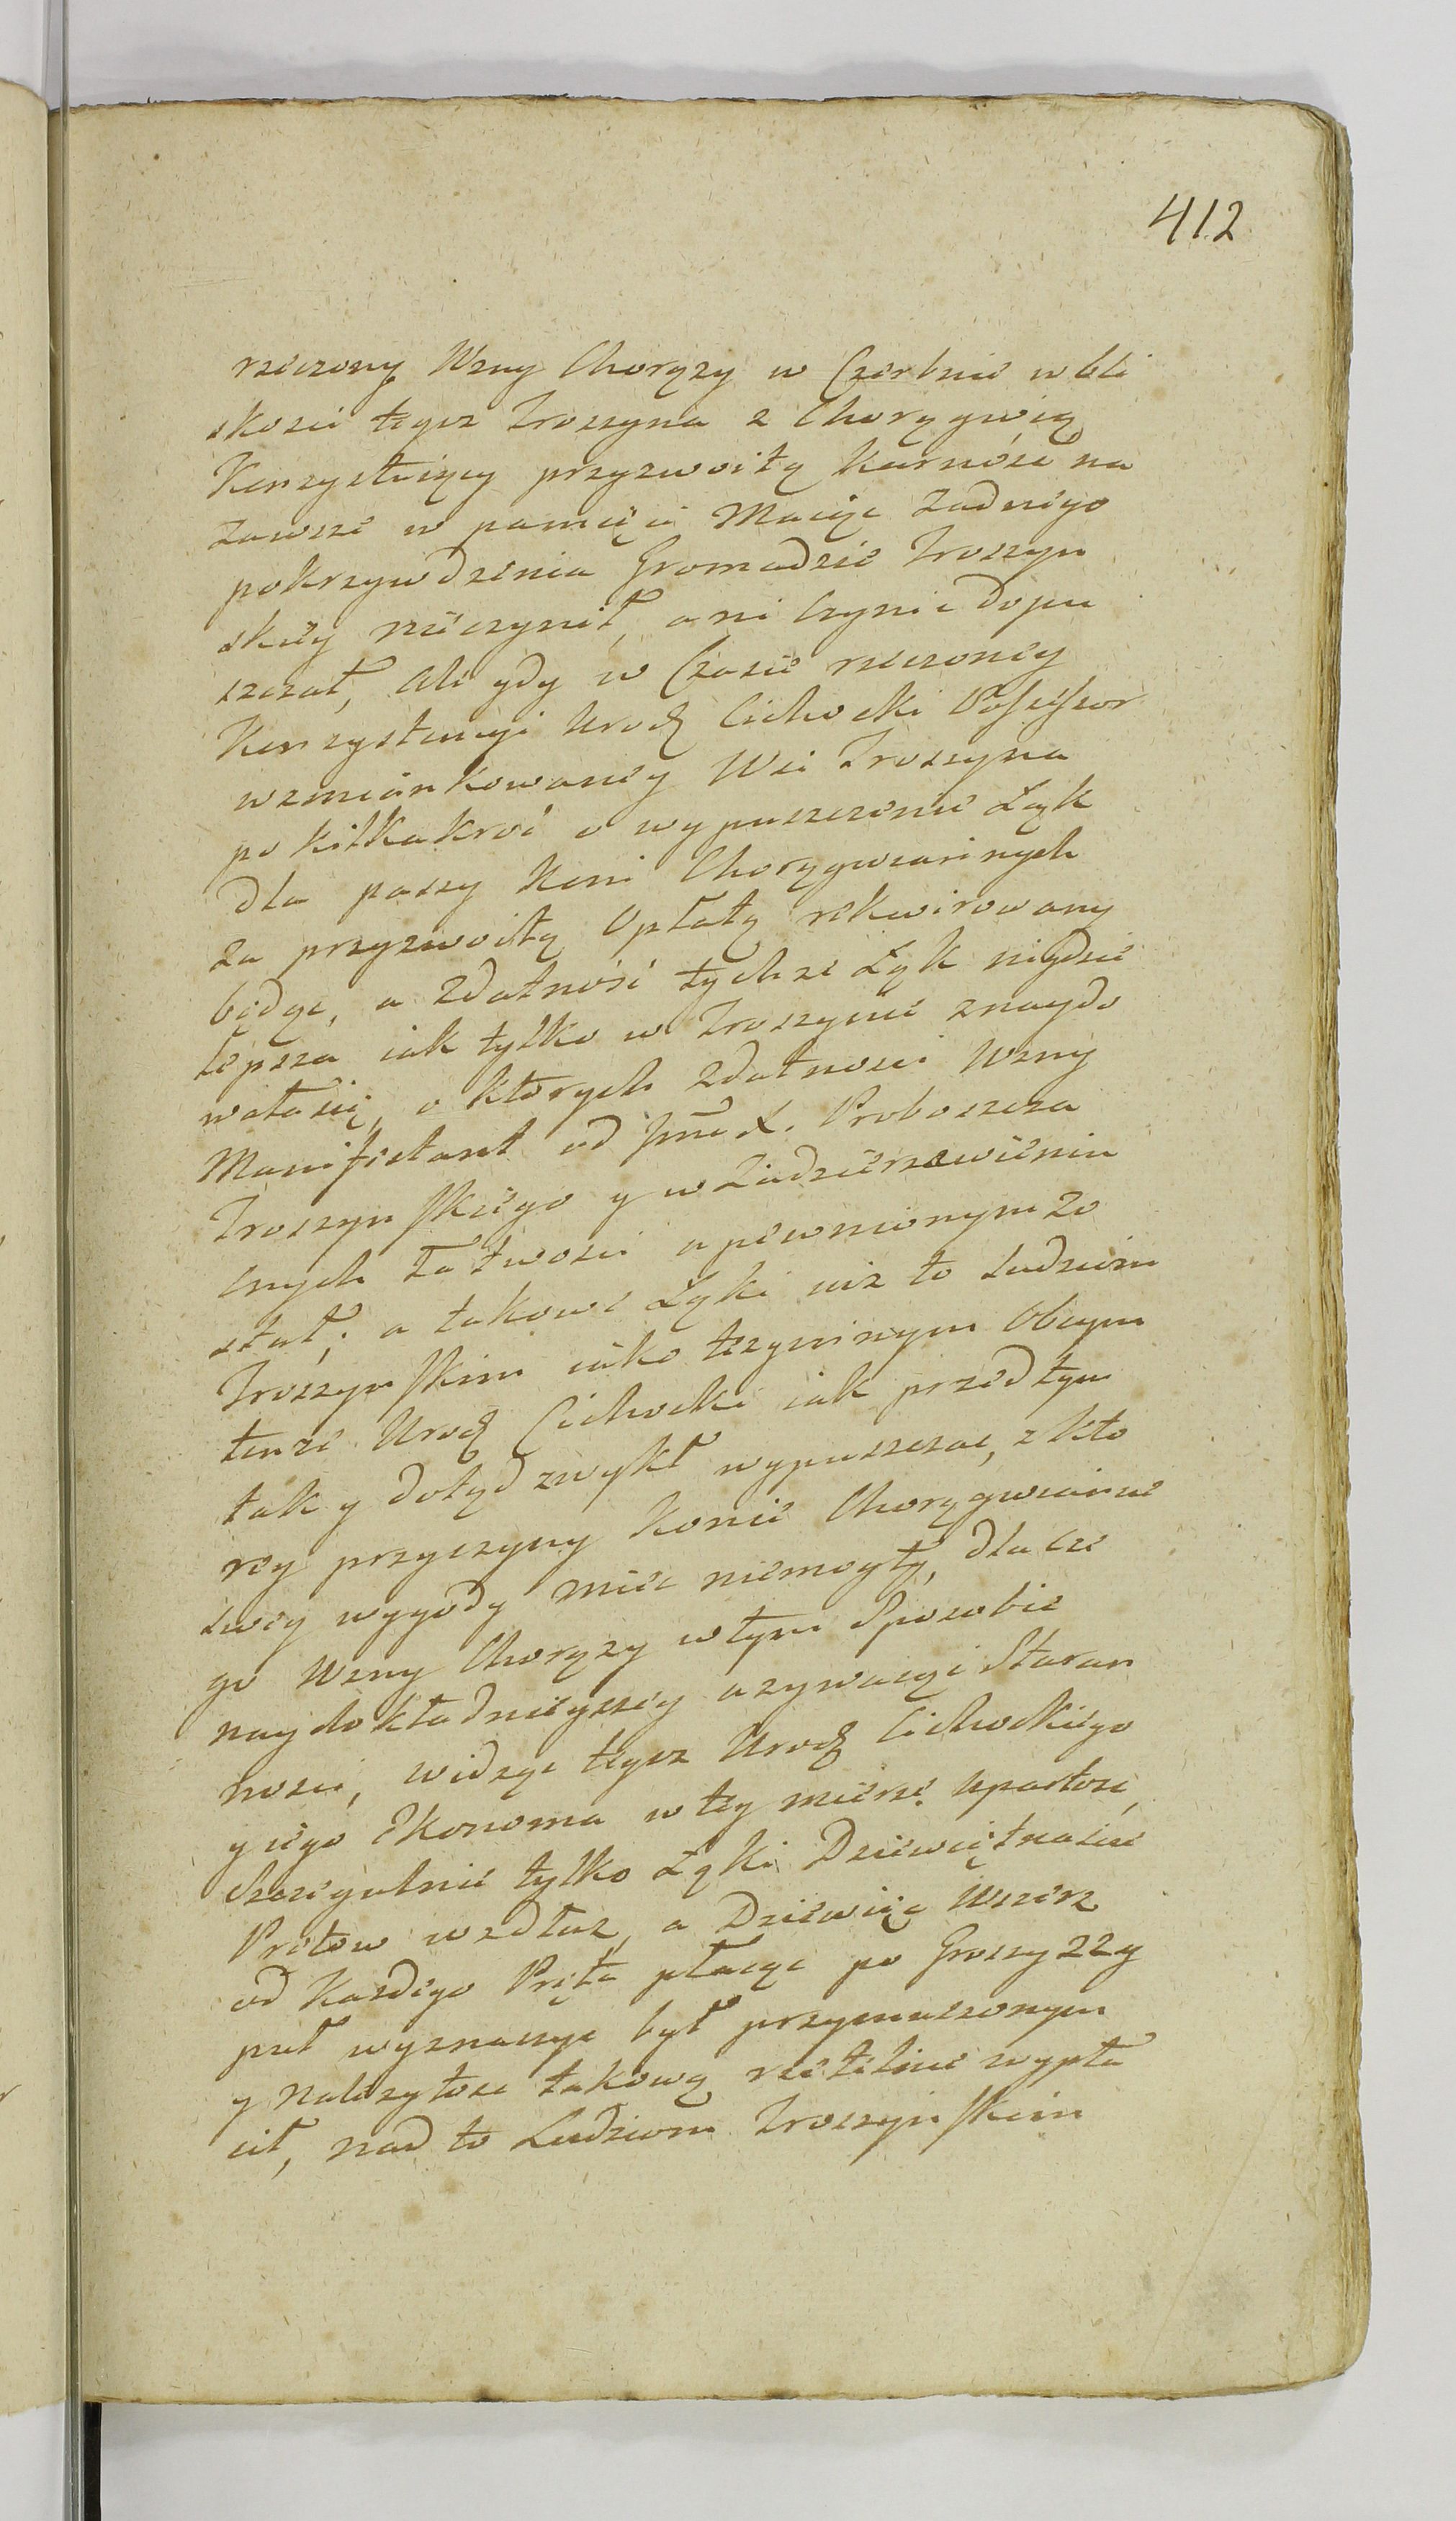 412
rzeczony Wzny Chorąży w Czerbnie w bli
skosci tegoz Troszyna z Chorągwią
Kęrzystuiący przyzwoitą karność na
zawsze w pamięci Maiąc żadnego
pokrzywdzenia Gromadzie Troszyn
skiey nieczynił, ani Czynic dopu
szczał, ale gdy w Czasie rzeczoney
Urodz Cichocki Possessor
wzmiankowaney Wsi Troszyna
po kilkakroć o wypuszczenie Łąk
dla paszy Koni Chorągwianych
za przyzwoitą Opłatą rekwirowany
będąc, a zdatność tychze Łąk nigdzie
lepsza iak tylko w Troszynie znaydo
wałasię, o ktorych zdatnosci Wzny
Manifestant od Jmć X. Proboszcza
Troszynskiego y w Zadzierzawieniu
onych łatwosci upewnionym zo
stał; a takowe Łąki iuz to Ludziom
Troszynskim iako tez y innym Obcym
tenze Urodz Cichocki iak przed tym
tak y dotąd zwykł wypuszczac, z kto
rey przyczyny konie Chorągwianne
swey wygody miec niemogły, dla cze
go Wzny Chorąży w tym Sposobie
naydokładnieyszey uzywaiąc Staran
nosci, widząc tegoz Urodz Cichockiego
y iego Ekonoma w tey mierze Upartosc,
Szczegulnie tylko Łąki Dziewiętnascie
Prętow wzdłuz, a Dziewięc Wszerz
od kazdego Pręta płacąc po Groszy 22 y
puł wyznaczyc był przymuszonym
y Nalezytosc takową rzetelnie wypła
cił, nad to Ludziom Troszynskim